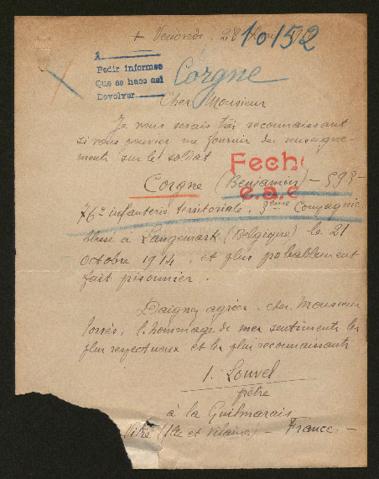 + Vendredi, 28
10152
A
Pedir informes
Que se hace asi
Devolver
Corgne
Cher Monsieur
Je vous serais très reconnaissant
si vous pouviez me fournir des renseigne-
ments sur le soldat
Fech
Corgne (Benjamin) - 598 -
e.a.c
76e infanterie territoriale, 9ème Compagnie
blessé à Langemark (Belgique) le 21
octobre 1914, et plus probablement
fait prisonnier.
Daignez agréer, cher Monsieur
l'hommage de mes sentiments les
plus respectueux et les plus reconnaissants
J. Louvel
prêtre
à la Guilmarais
Vitré (Ille et Vilaine) - France -